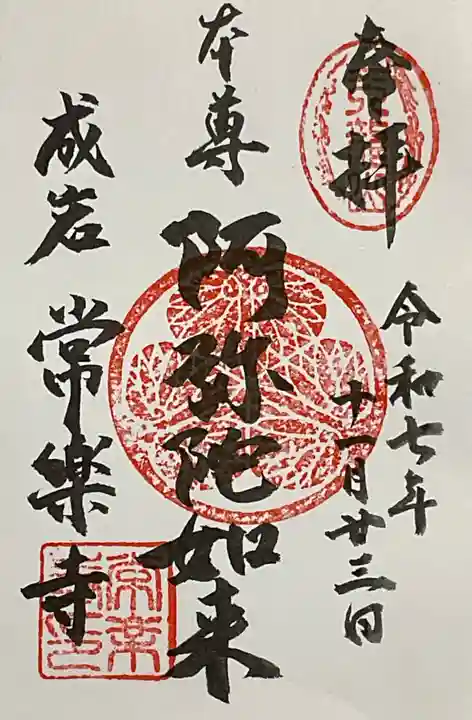 奉拝
令和七年
十一月廿三日
本尊
阿弥陀如来
成岩
常楽寺